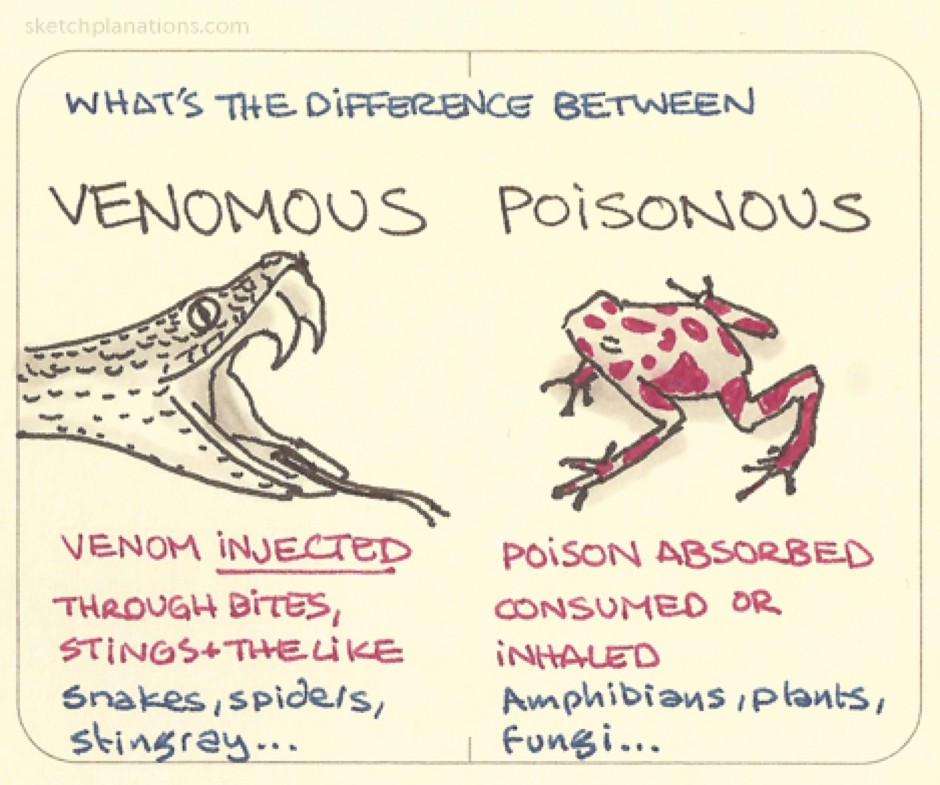 sketchplanations.com
WHAT'S THE DIFFERENCE BETWEEN
VENOMOUS
VENOM INJECTED
THROUGH BITES,
STINGS + THE LIKE
snakes, spiders,
stingray...
POISONOUS
POISON ABSORBED
CONSUMED OR
INHALED
Amphibians, plants,
fungi...